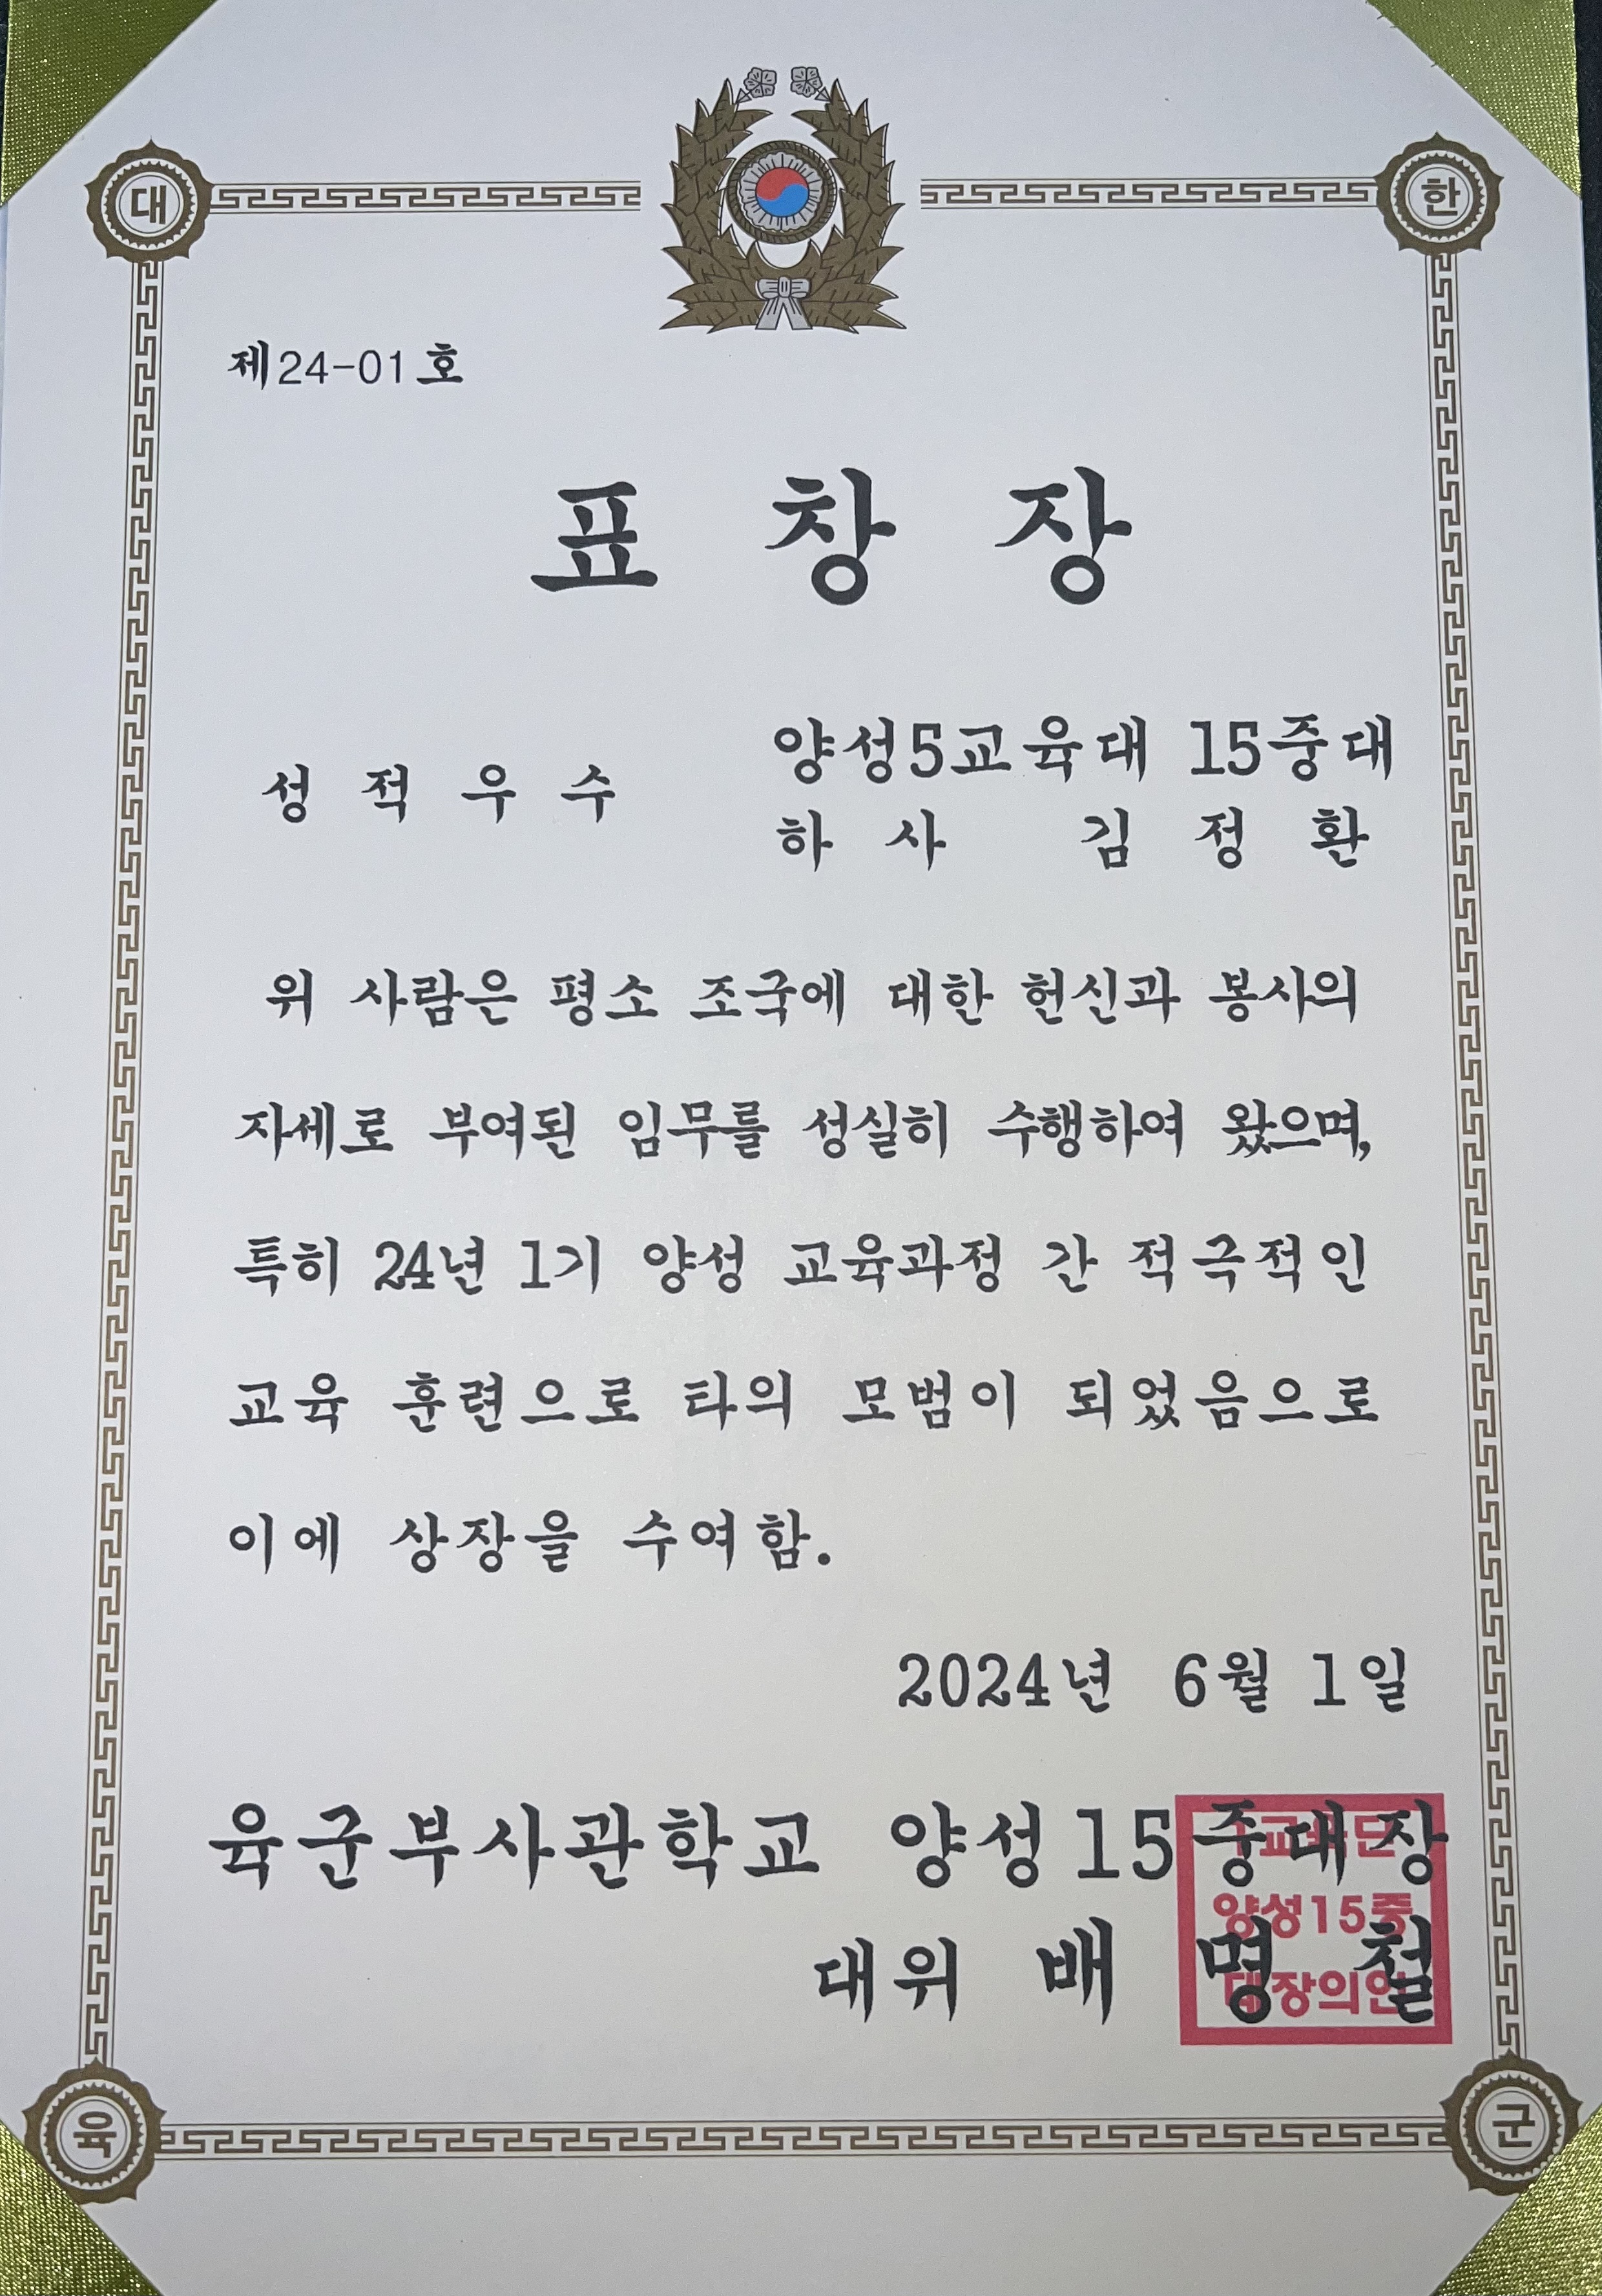 대 한
제 24-01 호
표 창 장
성 적 우 수
양성5교육대 15중대
하 사 김 정 환
위 사람은 평소 조국에 대한 헌신과 봉사의
자세로 부여된 임무를 성실히 수행하여 왔으며,
특히 24년 1기 양성 교육과정 간 적극적인
교육 훈련으로 타의 모범이 되었음으로
이에 상장을 수여함.
2024년 6월 1일
육군부사관학교 양성15중대장
대위 배 명 철
양성15중
대장의인
육 군